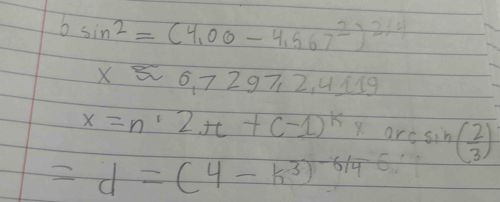 6 sin² = (4,00 - 4,567²)^2/4
x ≈ 0,7297, 2,4119
x = n · 2π + (-1)^k × arcsin(2/3)
= d = (4 - k³)^-6/4